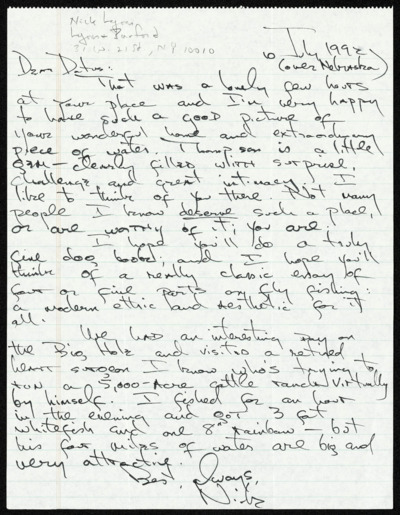 Nick Lyons
Lyons & Burford
31 W. 21 St., NY 10010
6 July 1992
(over Nebraska)
Dear Datus:
That was a lovely few hours
at your place and I'm very happy
to have such a good picture of
your wonderful home and extraordinary
piece of water. Thompson is a little
gem—clearly filled with surprise,
challenge, and great intimacy. I
like to think of you there. Not many
people I know deserve such a place,
or are worthy of it; you are.
I hope you'll do a truly
fine dog book; and I hope you'll
think of a really classic essay of
four or five parts on fly fishing:
a modern ethic and aesthetic for it
all.
We had an interesting day on
the Big Hole and visited a retired
heart surgeon I know who's trying to
run a 5,000-acre cattle ranch virtually
by himself. I fished for an hour
in the evening and got 3 fat
whitefish and one 8" rainbow — but
his four miles of water are big and
very attractive.
Best, Always,
Nick